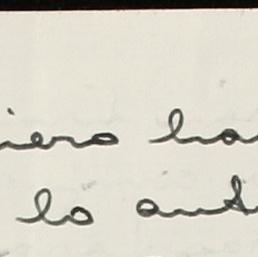 iero ha
lo ant